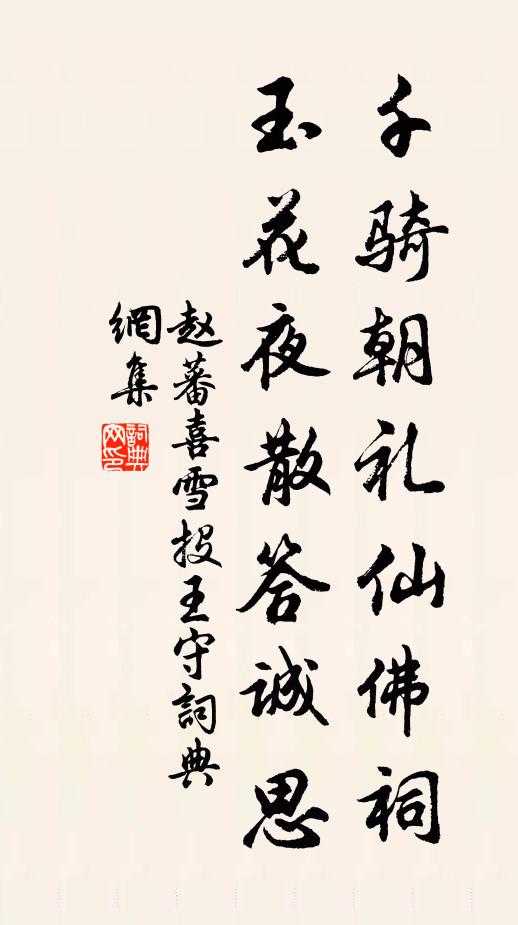 千骑朝礼仙佛祠
玉花夜散答诚思
赵蕃喜雪投王守詞典
網集
詞典
网印